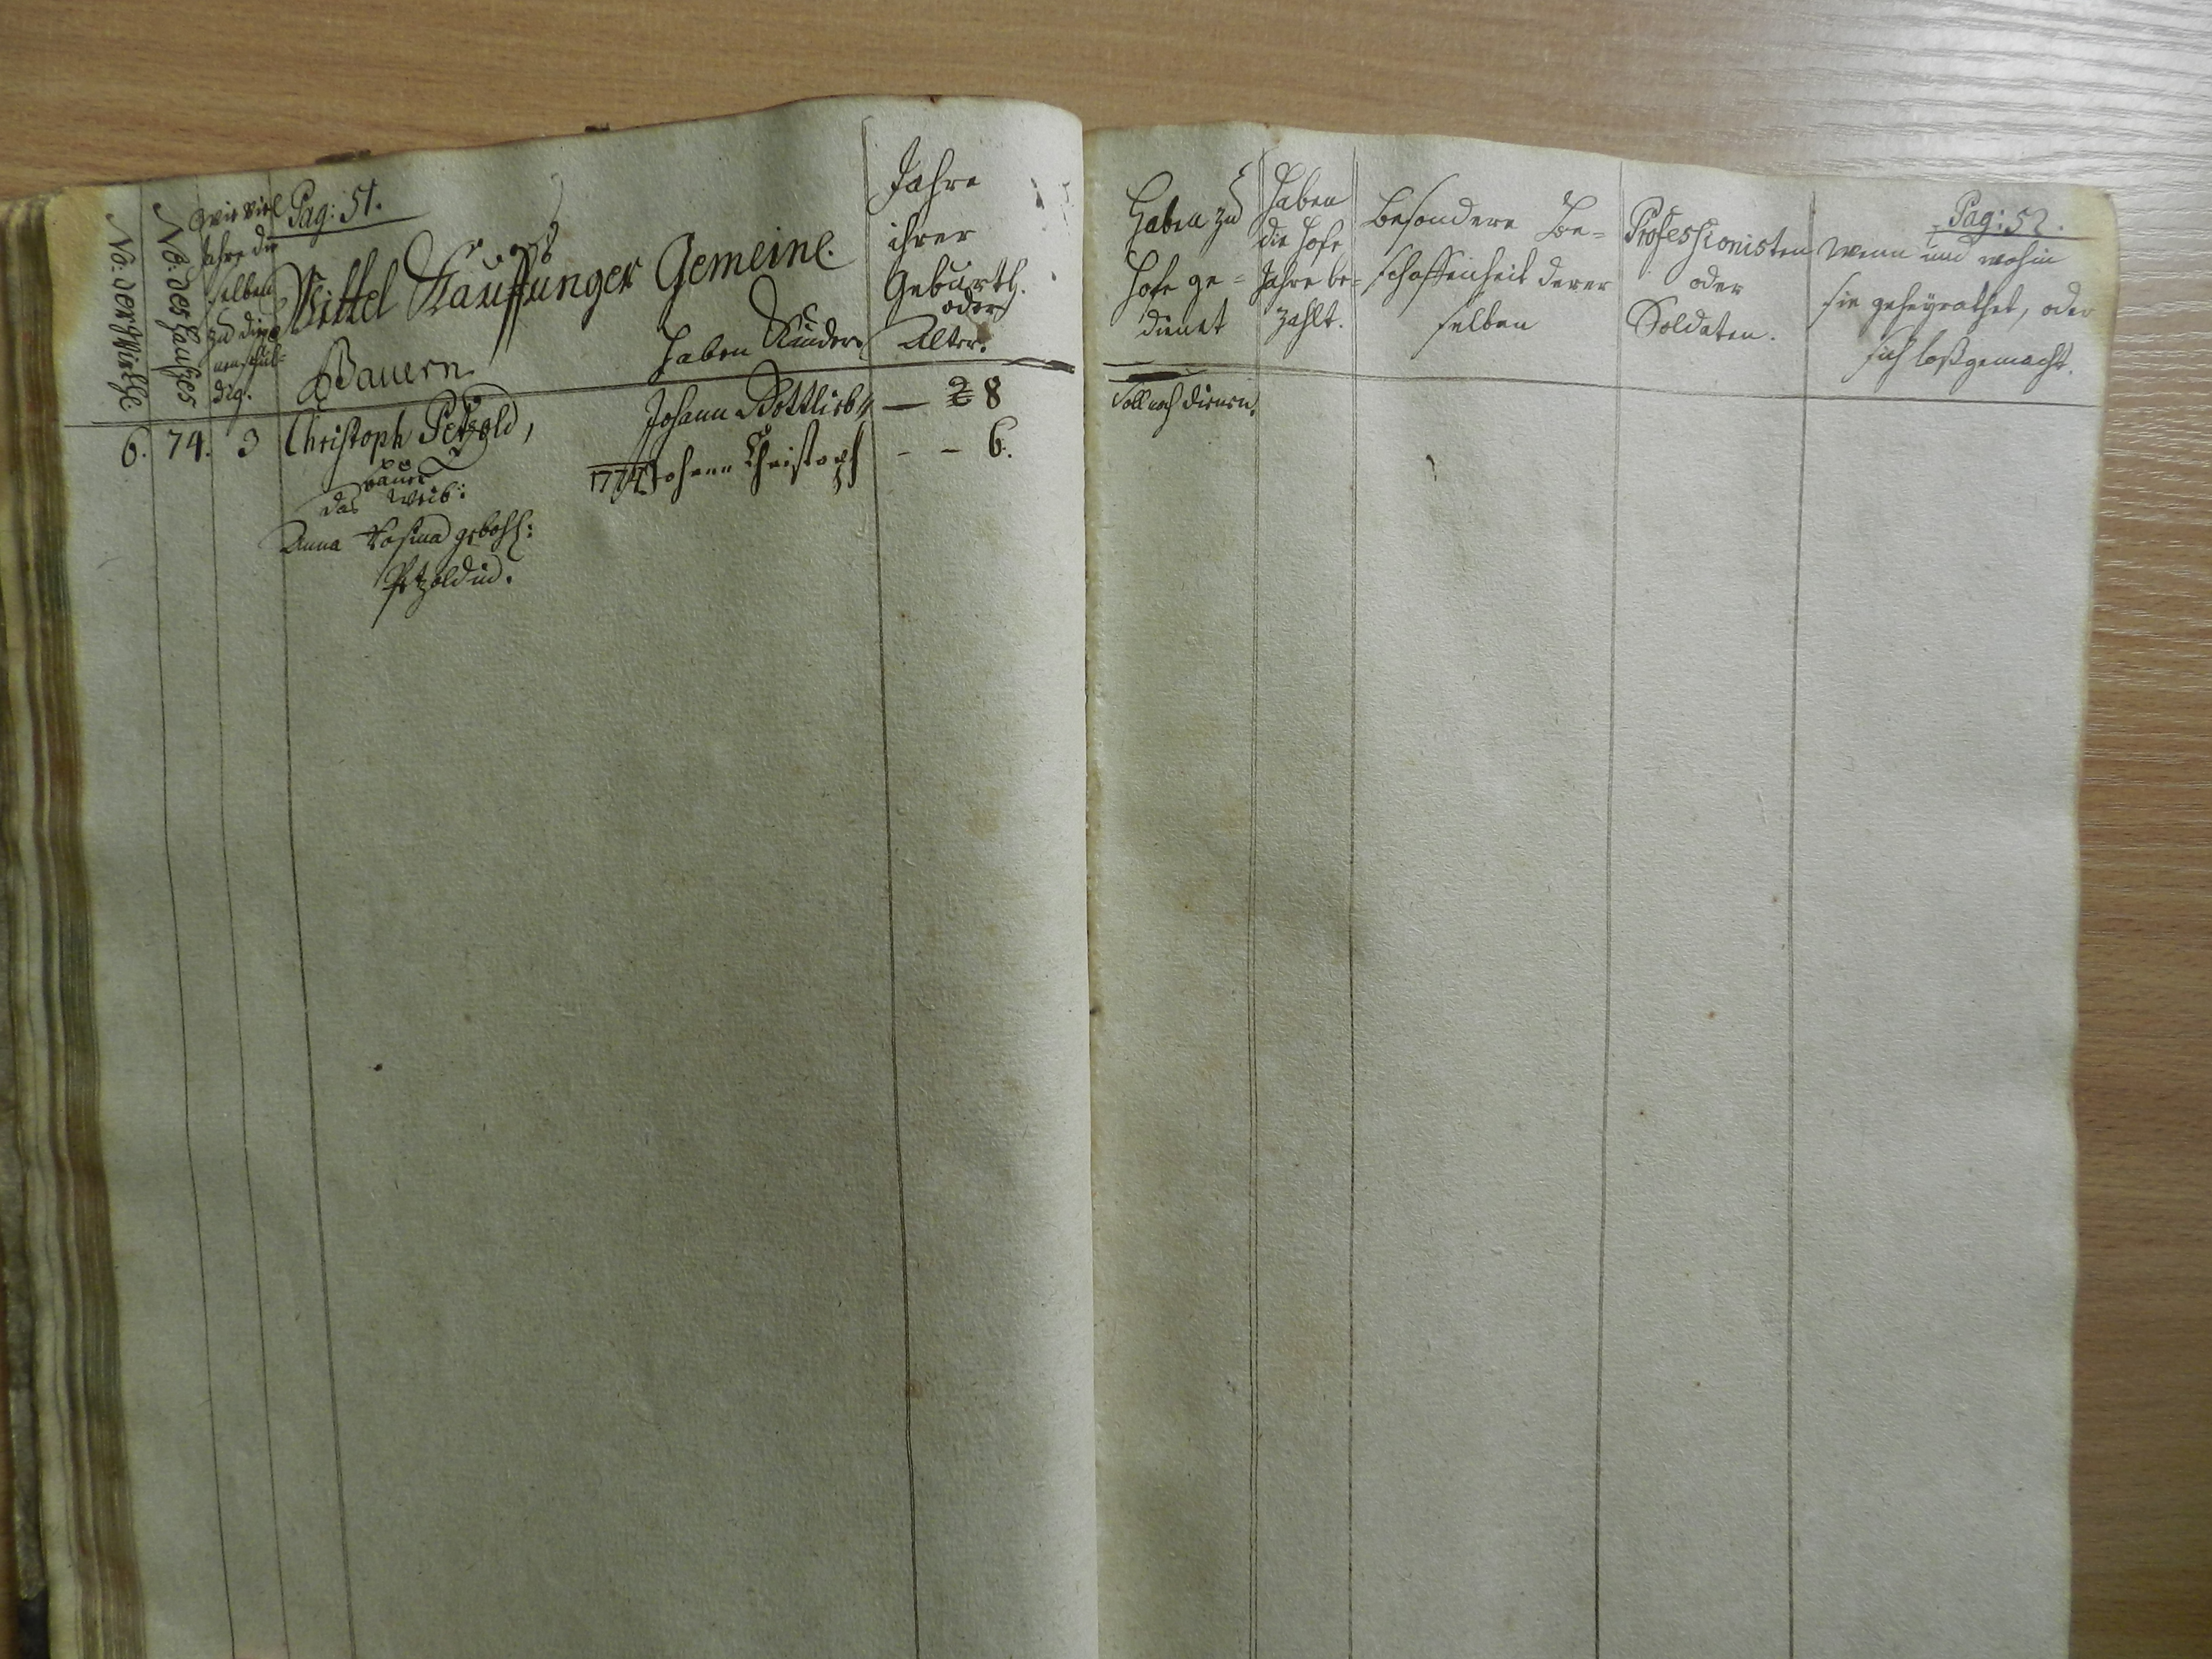 Pag: 51.
No: der Wirthe.
No: des Haußes
Wie viel
Jahre die
selben
zu diee
nen schul-
dig.
Mittel Kauffunger Gemeine.
Bauern
haben Kinder
Jahre
ihrer
Geburth.
oder
Alter.
6. 74. 3 Christoph Petzold,
Bauer
das Weib:
Anna Rosina gebohr:
Petzoldin.
Johann Gottlieb — 28
1774 Johann Christoph - - 6.
Pag: 52.
Haben zu
Hofe ge=
dienet
Haben
die Hofe
Jahre be=
zahlt.
Besondere Be=
schaffenheit derer
selben
Professionisten
oder
Soldaten.
Wenn und wohin
sie geheÿrathet, oder
sich loßgemacht.
Soll noch dienen.